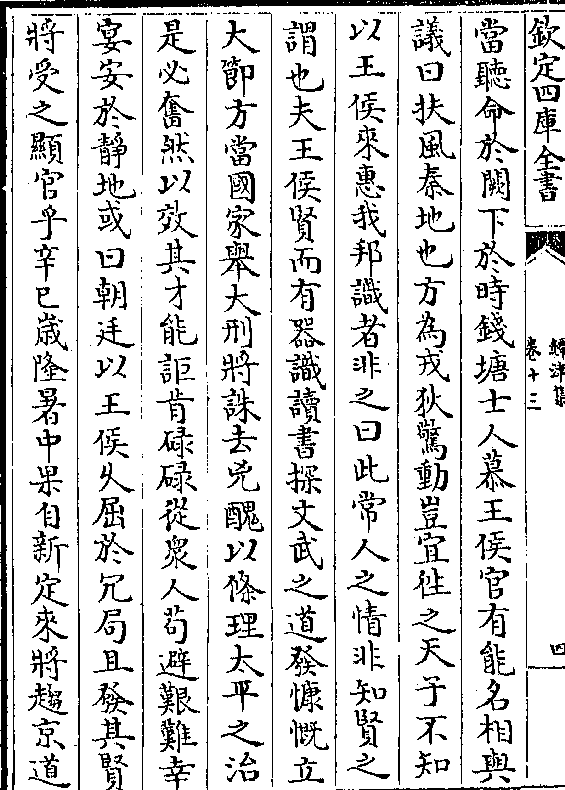 欽定四庫全書
鐔津集
卷十三
四
當聽命於闕下於時錢塘士人慕王侯官有能名相與
議曰扶風秦地也方為戎狄驚動豈宜徃之天子不知
以王侯來惠我邦識者非之曰此常人之情非知賢之
謂也夫王侯賢而有器識讀書探文武之道發慷慨立
大節方當國家舉大刑將誅去兇醜以條理太平之治
是必奮然以效其才能詎肯碌碌從衆人苟避艱難幸
宴安於靜地或曰朝廷以王侯久屈於冗局且發其賢
將受之顯官乎辛巳嵗隆暑中果自新定來將趨京道